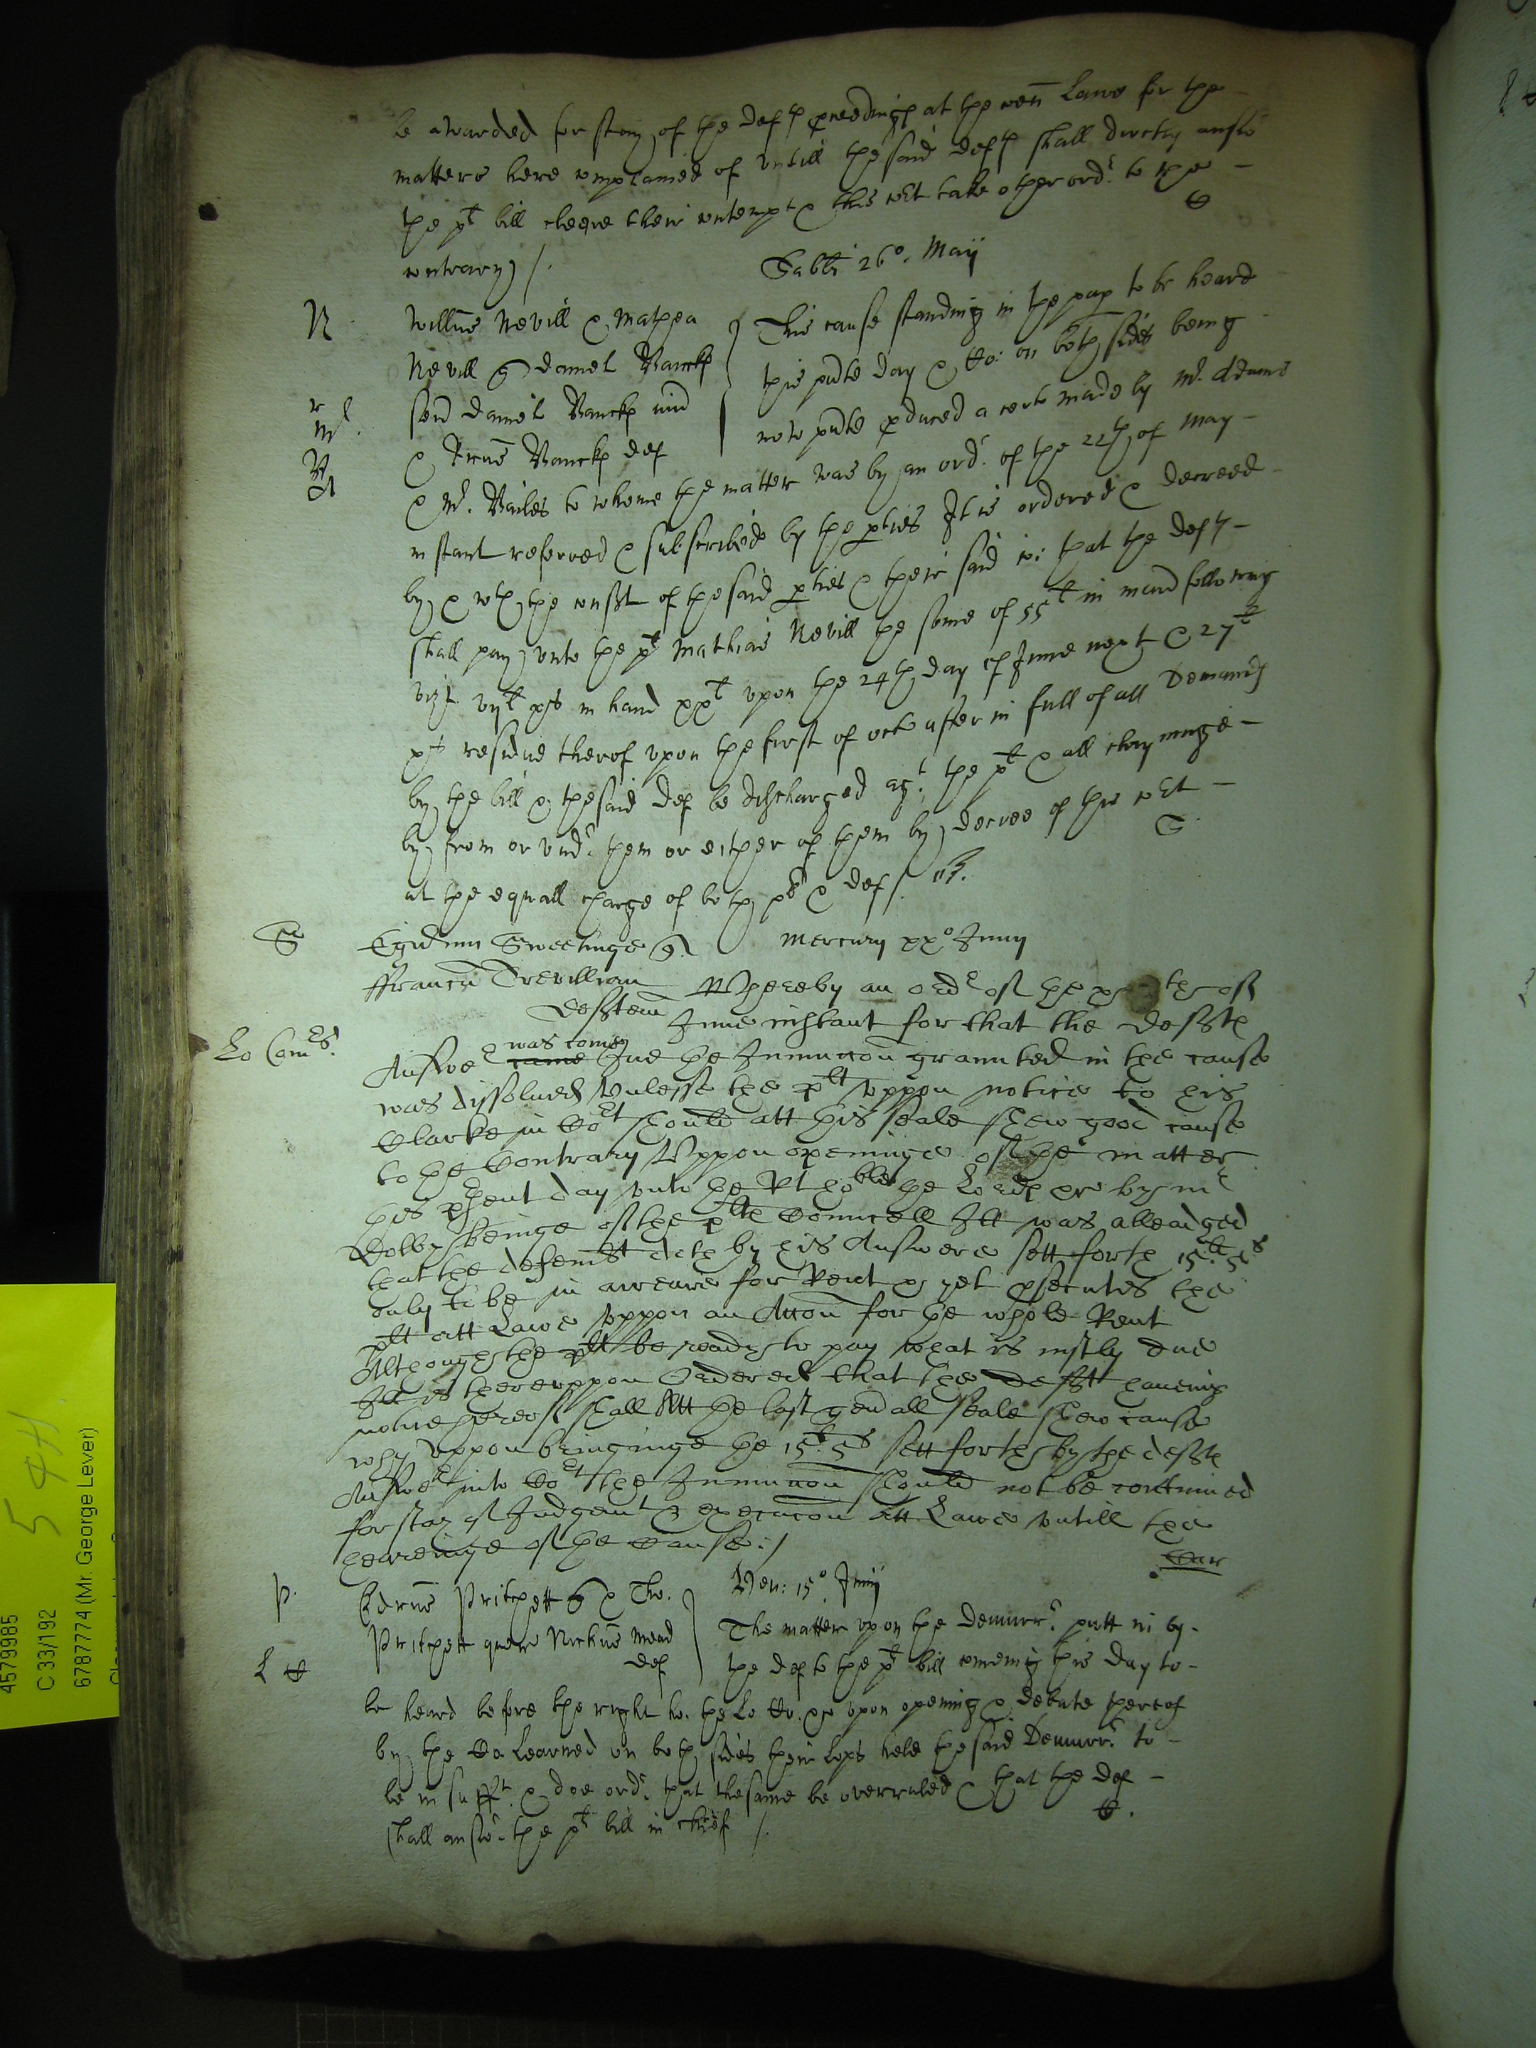 be awarded for stay of the defts proceedings at the comon Lawe for the
matters here complained of untill the said defts shall directly answ
the plt bill cleere their contempt & this cort take other ordr to the
contrary /.
Sabti 26o. Maij
N Willus Nevill & Mathea
Nevill q Daniel Banck
sen Daniel Banck iun
& Banck def
This cause standing in the pap to be heard
this pnte day & Co: on both sides being
now pnte pduced a certe made by Mr. Adams
& Mr. Bailes to whome the matter was by an ordr. of the 22th of May
instant referred & subscribed by the pties It is ordered & decreed
by & wth the consent of the said pties & their said co: that the defts
shall pay unto the plt Mathias Nevill the some of 55l in maner following
vizt viijl prs in hand xxl upon the 24th day of June next & 27l
residue therof upon the first of octo after in full of all demands
by the bill & the said def be discharged agt. the plt & all clayminge
by from or undr. them or either of them by decree of this cort
at the equall charge of both plts & def /.
S Egidius Sweetinge q.
Mercurij xxo Junij
ffranc Trevillian
defftem
Whereby an Ordr of the of
June instant for that the deffts
Lo Coms.
Answer came was come Jne the Jnunccon graunted in the cause
was dissolued Vnlesse the plt vppon notice to his
Clarke in Cort should att this seale shew good cause
to the Contrary Vppon openinge of the matter
this psent day vnto the Rt hoble the Lords by mr
Dolby beinge of the plts Councell Itt was alleadged
that the defendt doth by his Answere sett forth 15l. 5s
only to be in arreare for Rent & yet psecutes the
plt att Lawe vppon an Accon for the whole Rent
Although the plt be ready to pay what is iustly due
Itt is therevppon Ordered that the defft haueing
notice hereof shall Att the last genall seale shew cause
why vppon bringinge the 15l. 5s sett forth by the deffts
Answer into Cort the Jnunccon should not be contineued
for stay of Judgemt & execucon att Lawe vntill the
heareinge of the Cause. /
P. Edrus Pritchett & Tho.
Pritchett quer Mead
def
Ven: 15o. Junij
L
The matter upon the Demurr. putt in by
the def to the plt bill comeing this day to
be heard before the right ho. the Lo Co. upon opening & debate thereof
by the Co Learned on both sides their Lops held the said Demurr. to
be insufft. & doe ordr. that the same be overruled & that the def
shall answ. the plt bill in chief /.
4579985
C 33/192
6787774 (Mr. George Lever)
54H.